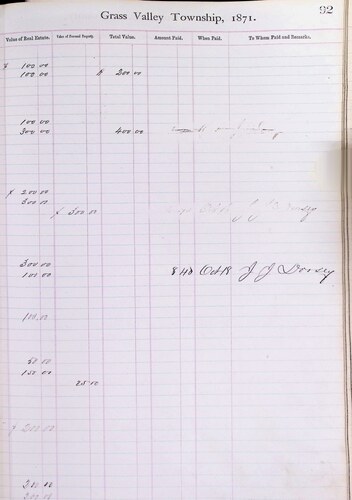 92
Grass Valley Township, 1871.
Value of Real Estate. Value of Personal Property. Total Value. Amount Paid. When Paid. To Whom Paid and Remarks.
$ 100 00
100 00 $ 200 00
100 00
300 00 400 00
$ 200 00
500 00
$ 500 00
300 00
100 00 8 40 Oct 18 J J Dorsey
100 00
50 00
150 00
25 00
$ 200 00
200 00
300 00